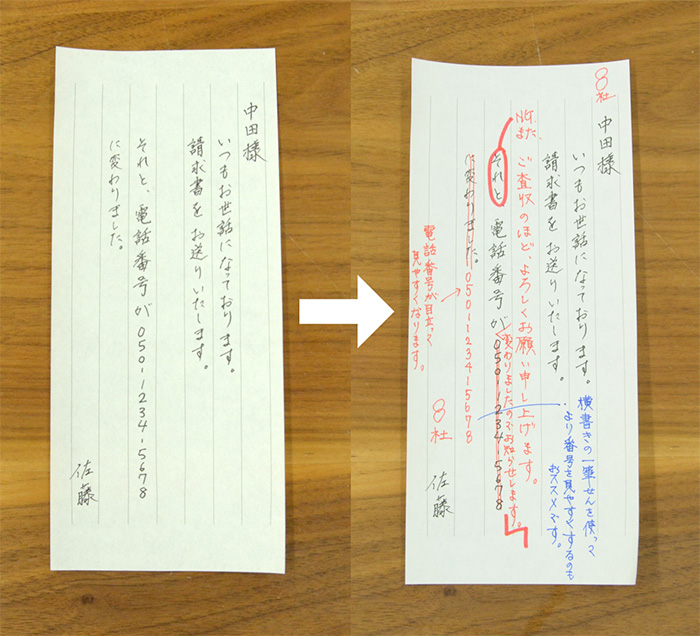 中田様
いつもお世話になっております。
請求書をお送りいたします。
それと、電話番号が050-1234-5678
に変わりました。
佐藤
○○社
中田様
いつもお世話になっております。
請求書をお送りいたします。
ご査収のほど、よろしくお願い申し上げます。
また、
それと 電話番号が050-1234-5678
変わりましたのでお知らせします。
に変わりました。
050-1234-5678
電話番号が目立って
見やすくなります。
○○社
佐藤
横書きの一筆せんを使って
より番号を見やすくするのも
おススメです。